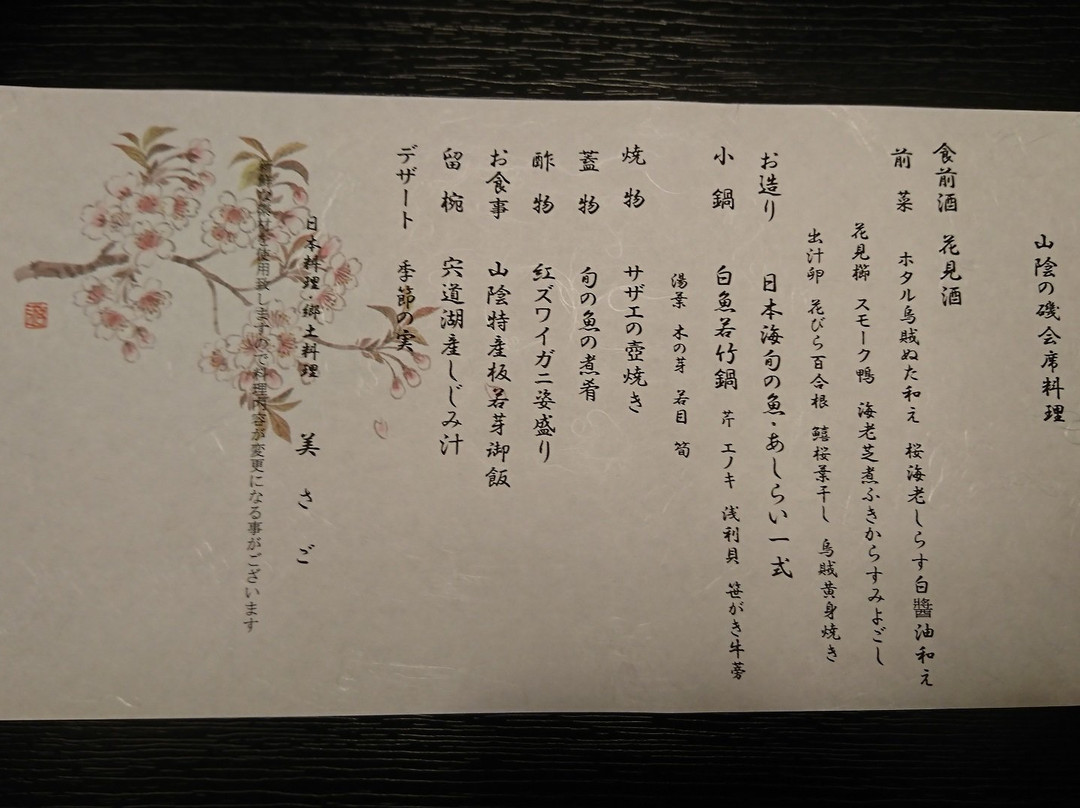 山陰の磯会席料理
食前酒 花見酒
前菜 ホタル烏賊ぬた和え 桜海老しらす白醬油和え
花見櫛 スモーク鴨 海老芝煮ふきからすみよごし
出汁卵 花びら百合根 鱚桜葉干し 烏賊黄身焼き
お造り 日本海旬の魚・あしらい一式
小鍋 白魚若竹鍋 芹 エノキ 浅利貝 笹がき牛蒡
湯葉 木の芽 若目 筍
焼物 サザエの壺焼き
蓋物 旬の魚の煮肴
酢物 紅ズワイガニ姿盛り
お食事 山陰特産板若芽御飯
留椀 宍道湖産しじみ汁
デザート 季節の実
日本料理・郷土料理 美さご
新鮮な素材を使用致しますので料理内容が変更になる事がございます